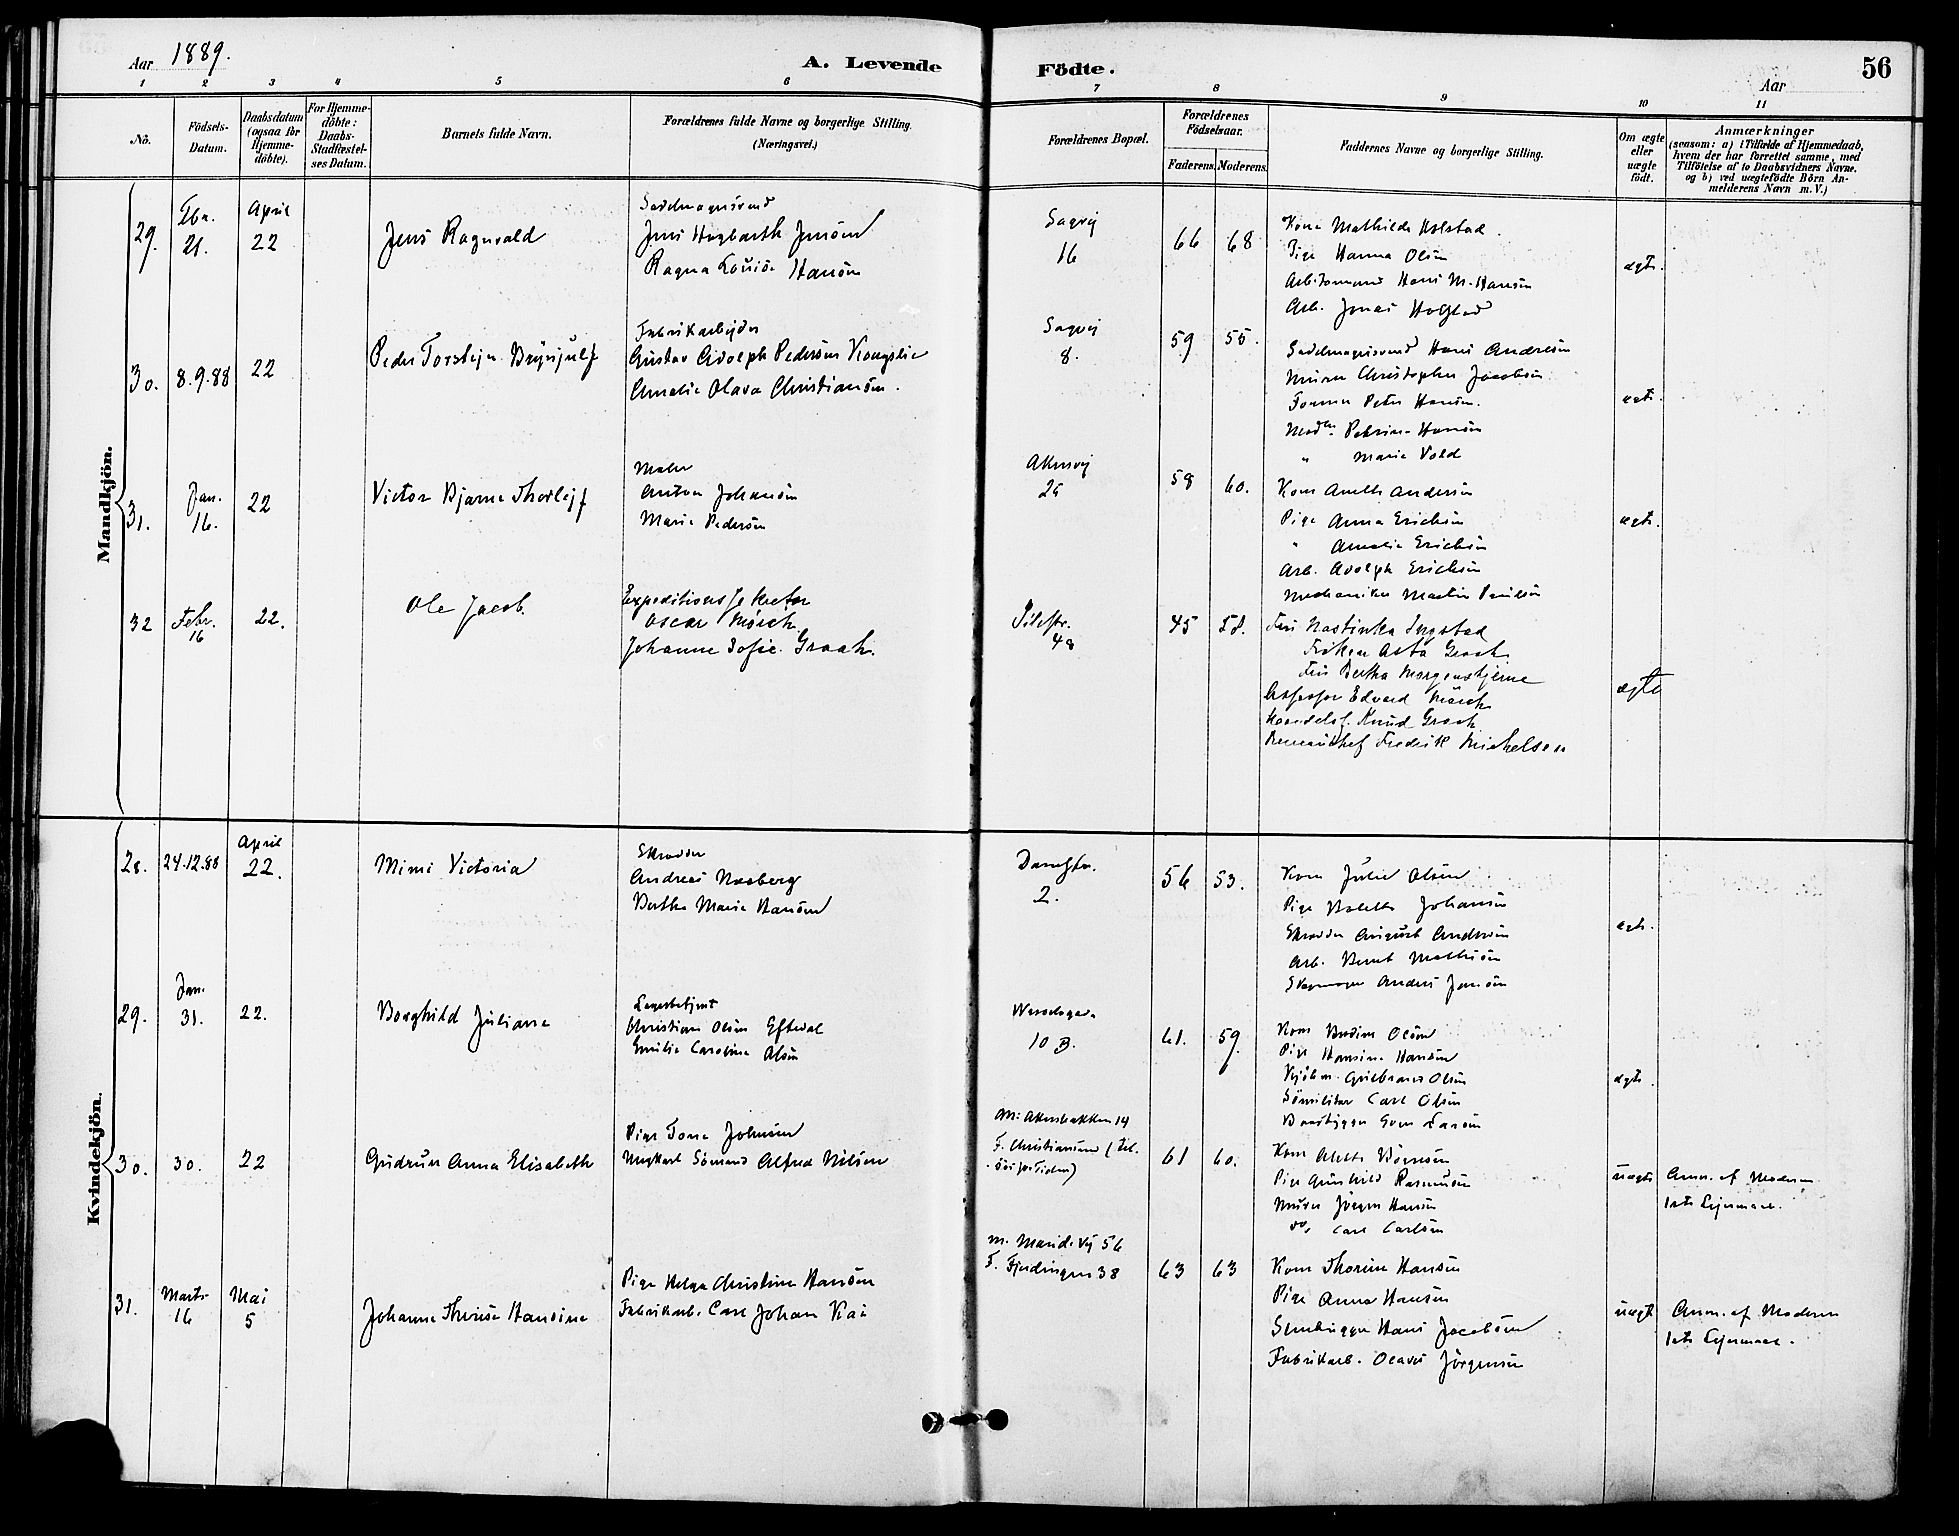 Aar 1889.
A. Levende Födte.
Aar
56
1 2 3 4 5 6 7 8 9 10 11
No.
Födsels-Datum.
Daabsdatum (ogsaa for Hjemme-döbte).
For Hjemme-döbte: Daabs-Stadfæstel-ses Datum.
Barnets fulde Navn.
Forældrenes fulde Navne og borgerlige Stilling.
(Næringsvei.)
Forældrenes Bopæl.
Forældrenes Födselsaar.
Faderens. Moderens.
Faddernes Navne og borgerlige Stilling.
Om ægte eller uægte födt.
Anmærkninger
(saasom: a) i Tilfælde af Hjemmedaab,
hvem der har forrettet samme, med
Tilföielse af to Daabsvidners Navne.
og b) ved uægtefödte Börn An-
melderens Navn m. V.)
Mandkjön.
29.
Fbr. 21.
April 22
Jens Ragnvald
Sadelmagersvend
Jens Hagbarth Jensen
Ragna Louise Hansen
Sagvej
16
66 68
Kone Mathilde Holstad
Pige Hanna Olsen
Arb.formand Hans M. Hansen
Arb. Jonas Holstad
ægte.
30. 8.9.88 22
Peder Torstejn Brynjulf
Fabrikarbejder
Gustav Adolph Pedersen Kongslie
Amalie Olava Christiansen.
Sagvej
8.
59 55.
Sadelmagersvend Hans Andresen
Murer Christopher Jacobsen
Former Peter Hansen.
Madm. Petrine Hansen
" Marie Vold
ægte.
31.
Jan. 16.
22
Victor Bjarne Thorlejf
Maler
Anton Johansen
Marie Pedersen
Akersvej
25
58 60.
Kone Anette Andersen
Pige Anna Erichsen
" Amalie Erichsen
Arb. Adolph Erichsen
Mechaniker Martin Paulsen
ægte.
32
Febr. 16
22.
Ole Jacob.
Expeditionssekretær
Oscar Mörch
Johanne Sofie Graah.
Pilestr.
48
45 58.
Fru Nastinka Sygstad
Fröken Asta Graah
Fru Bertha Morgenstjerne
Assessor Edvard Mörch
Handelsf. Knud Graah
Bureauchef Fredrik Michelsen
ægte
Kvindekjön.
28. 24.12.88
April 22.
Mimi Victoria
Skrædder
Andreas Naaberg
Bertha Marie Hansen
2.
56 53.
Kone Julie Olsen
Pige Bolette Johansen
Skrædder August Andersen
Arb. Bernt Mathisen
Skomager Anders Jensen
ægte.
29.
Jan. 31.
22.
Borghild Juliane
Lagerbetjent
Christian Olsen Eftedal
Emilie Caroline Olsen
Wesselsgade
10 B.
61. 59.
Kone Bodine Olsen
Pige Hansine Hansen
Kjöbm. Gulbrand Olsen
Sömilitær Carl Olsen
Baadbygger Even Larsen
ægte.
30. 30. 22
Gudrun Anna Elisabeth
Pige Tona Johnsen
Ungkarl Sömand Alfred Nilsen
M: Akersbakken 14
F. Christiansund (til-
söes for Tiden)
61 60.
Kone Alette Börresen
Pige Gunhild Rasmussen
Murer Jörgen Hansen
do. Carl Carlsen
uægte
Anm. af Moderen
1ste Lejermaal.
31.
Marts 16
Mai 5
Johanne Therese Hansine
Pige Helga Christine Hansen
Fabrikarb. Carl Johan Kai
M. Maridalsvej 56
F. Fjerdingen 38
63 63
Kone Thorine Hansen
Pige Anna Hansen
Stenhugger Hans Jacobsen
Fabrikarb. Olaves Jörgensen
uægte
Anm. af Moderen
1ste Lejermaal.